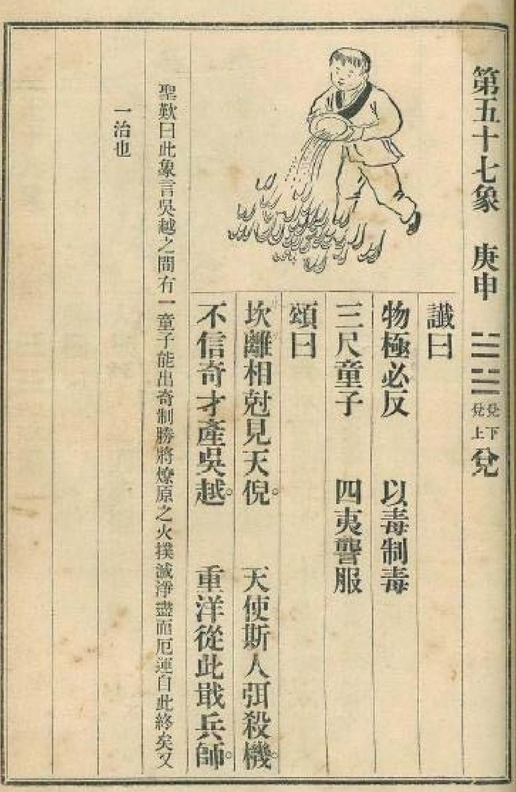 第五十七象　庚申　兌下兌上　兌
讖曰
物極必反　以毒制毒
三尺童子　四夷讋服
頌曰
坎離相尅見天倪。　天使斯人弭殺機。
不信奇才產吳越。　重洋從此戢兵師。
聖歎曰此象言吳越之間有一童子能出奇制勝將燎原之火撲滅淨盡而厄運自此終矣又
一治也